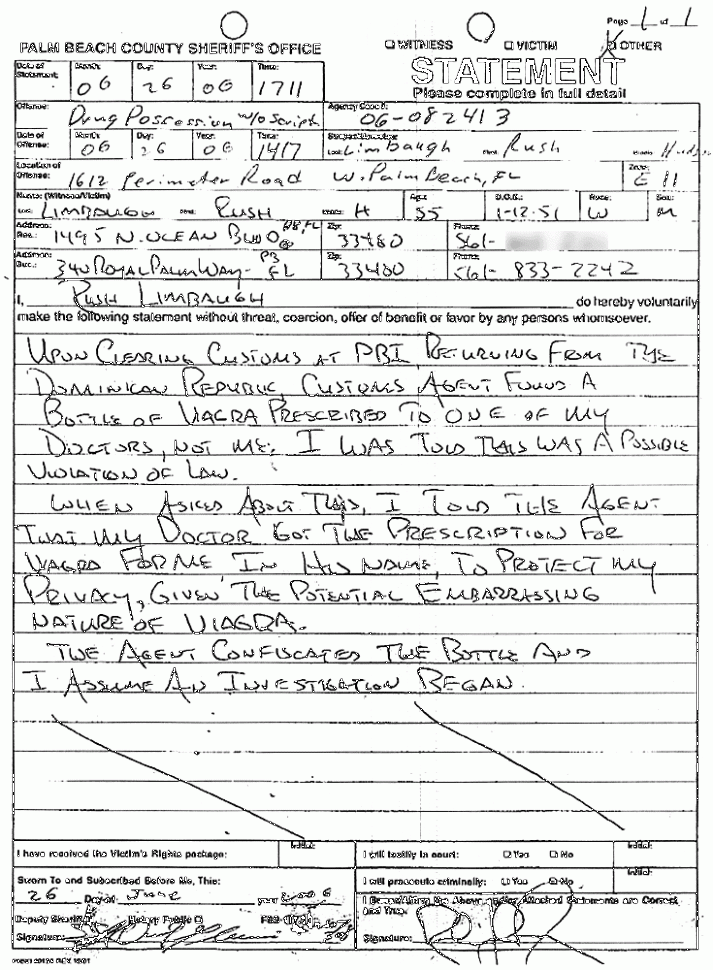 Page 1 of 1
PALM BEACH COUNTY SHERIFF'S OFFICE
WITNESS VICTIM OTHER
STATEMENT
Please complete in full detail
Date of Statement: Month: 06 Day: 26 Year: 06 Time: 1711
Offense: Drug Possession w/o Script Agency Case #: 06-082413
Date of Offense: Month: 06 Day: 26 Year: 06 Time: 1417 Last: Limbaugh First: Rush Middle:
Location of Offense: 1612 Perimeter Road W. Palm Beach, FL Zone: E 11
Name: (Witness/Victim) Last: LIMBAUGH First: RUSH Middle: H Age: 55 D.O.B.: 1-12-51 Race: W Sex: M
Address: Res.: 1495 N. OCEAN BLVD Zip: 33480 Phone: 561-
Address: Bus.: 340 ROYAL PALM WAY - PB FL Zip: 33480 Phone: 561- 833-2242
I, RUSH LIMBAUGH do hereby voluntarily
make the following statement without threat, coercion, offer of benefit or favor by any persons whomsoever.
UPON CLEARING CUSTOMS AT PBI RETURNING FROM THE
DOMINICAN REPUBLIC, CUSTOMS AGENT FOUND A
BOTTLE OF VIAGRA PRESCRIBED TO ONE OF MY
DOCTORS, NOT ME. I WAS TOLD THIS WAS A POSSIBLE
VIOLATION OF LAW.
WHEN ASKED ABOUT THIS, I TOLD THE AGENT
THAT MY DOCTOR GOT THE PRESCRIPTION FOR
VIAGRA FOR ME IN HIS NAME, TO PROTECT MY
PRIVACY, GIVEN THE POTENTIAL EMBARRASSING
NATURE OF VIAGRA.
THE AGENT CONFISCATED THE BOTTLE AND
I ASSUME AN INVESTIGATION BEGAN.
I have received the Victim's Rights package: Initial:
I will testify in court: Yes No Initial:
Sworn To and Subscribed Before Me, This:
26 Day of June year 2006
I will prosecute criminally: Yes No Initial:
Deputy Sheriff Notary Public
Signature:
I Swear/Affirm the Above and/or Attached Statements are Correct and True.
Signature: